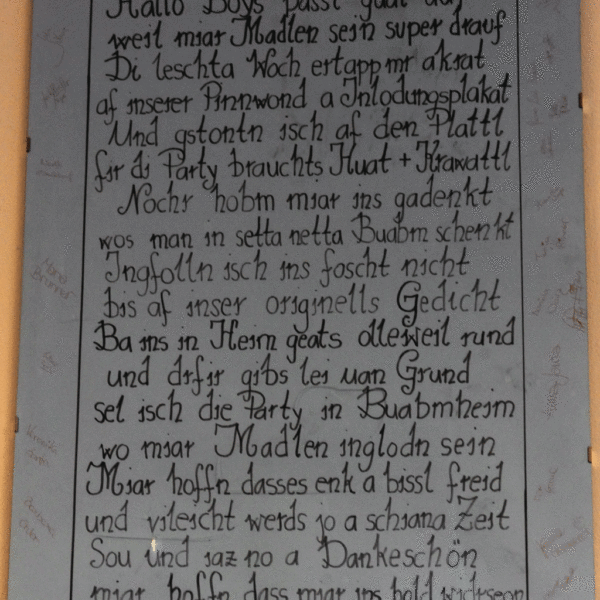 Hallo Boys passt guat auf
weil miar Madlen sein super drauf
Di leschta Woch ertapp mr akrat
af inserer Pinnwond a Inlodungsplakat
Und gstontn isch af den Plattl
fir di Party brauchts Huat + Krawattl
Nochr hobm miar ins gadenkt
wos man in setta netta Buabm schenkt
Ingfolln isch ins foscht nicht
bis af inser originells Gedicht
Ba ins in Heim geats olleweil rund
und drfir gibs lei uan Grund
sel isch die Party in Buabmheim
wo miar Madlen inglodn sein
Miar hoffn dasses enk a bissl freid
und vileicht werds jo a schiana Zeit
Sou und iaz no a Dankeschön
miar hoffn dass miar ins bold widrseon